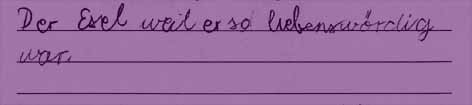 Der Esel weil er so liebenswördig
war.